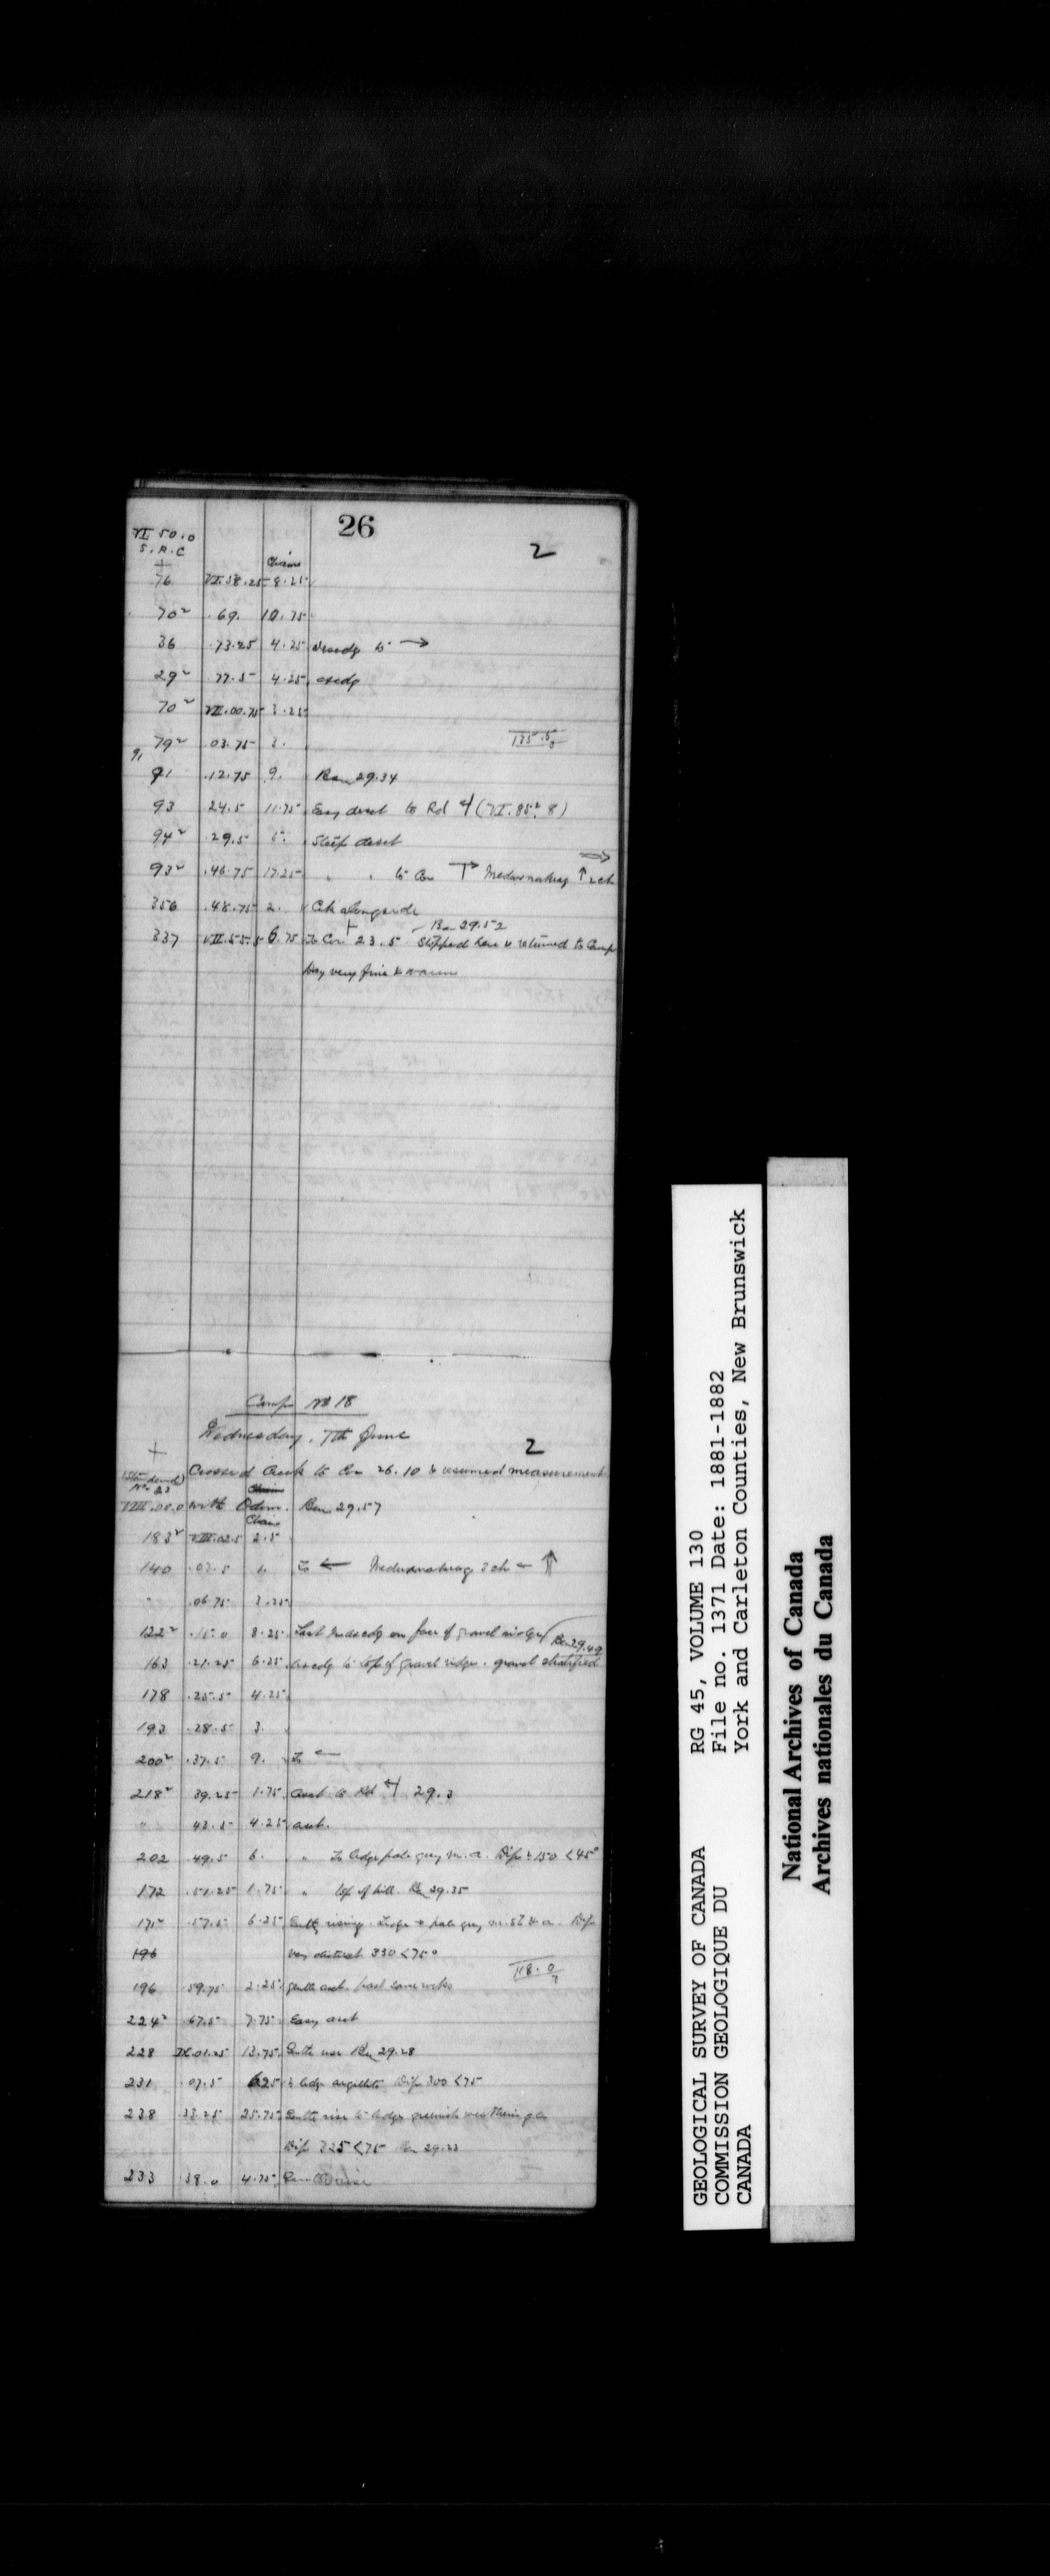 26
VI 50.0
S.A.C
2
+
Chains
76 VI.58.25 8.25
70² .69. 10.75
36 .73.25 4.25 to →
29² .77.5 4.25
70² VII.00.75 3.25
79² .03.75 3.
135.5
91 .12.75 9. Bar 29.34
93 24.5 11.75 Easy desct to Rd (VI.85².8)
94² .29.5 5. Steep desct
93² .46.75 17.25 " " to Cor Meduxnakeag ↑ 2 ch
356 .48.75 2. Crk alongside
Bar 29.52
337 VII.55.5 6.75 To Cor 23.5. Stopped here & returned to Camp
Day very fine & warm
Camp No 18
Wednesday, 7th June
2
+
(Standard)
No 23
Crossed Creek to Cor 26.10 & resumed measurement
VIII.00.0 with Odom. Bar 29.57
Chains
183² VIII.02.5 2.5
140 .03.5 1. To ← Meduxnakeag 2 ch ← ↑
" .06.75 3.25
122² .15.0 8.25 Last on face of gravel ridge (Bar 29.49
163 .21.25 6.25 to top of gravel ridge. gravel stratified
178 .25.5 4.25
193 .28.5 3.
200² .37.5 9. To ←
218² 39.25 1.75 asct to Rd 29.3
" 43.5 4.25 asct.
202 .49.5 6. " To ledge pale grey m. a. Dip 150 <45°
172 .51.25 1.75 " top of hill. Bar 29.35
171² .57.5 6.25 Gently rising. Ledge pale grey Dip
196 very distinct 330 <75°
118.0
196 .59.75 2.25 gentle asct. past same rocks
224² .67.5 7.75 Easy asct
228 IX.01.25 13.75 Gentle rise Bar 29.28
231 .07.5 6.25 to ledge argillite Dip 300 <75
238 .33.25 25.75 Gentle rise to ledge greenish weathering
Dip 325 <75 Bar 29.23
233 .38.0 4.75
GEOLOGICAL SURVEY OF CANADA
COMMISSION GEOLOGIQUE DU
CANADA
RG 45, VOLUME 130
File no. 1371 Date: 1881-1882
York and Carleton Counties, New Brunswick
National Archives of Canada
Archives nationales du Canada